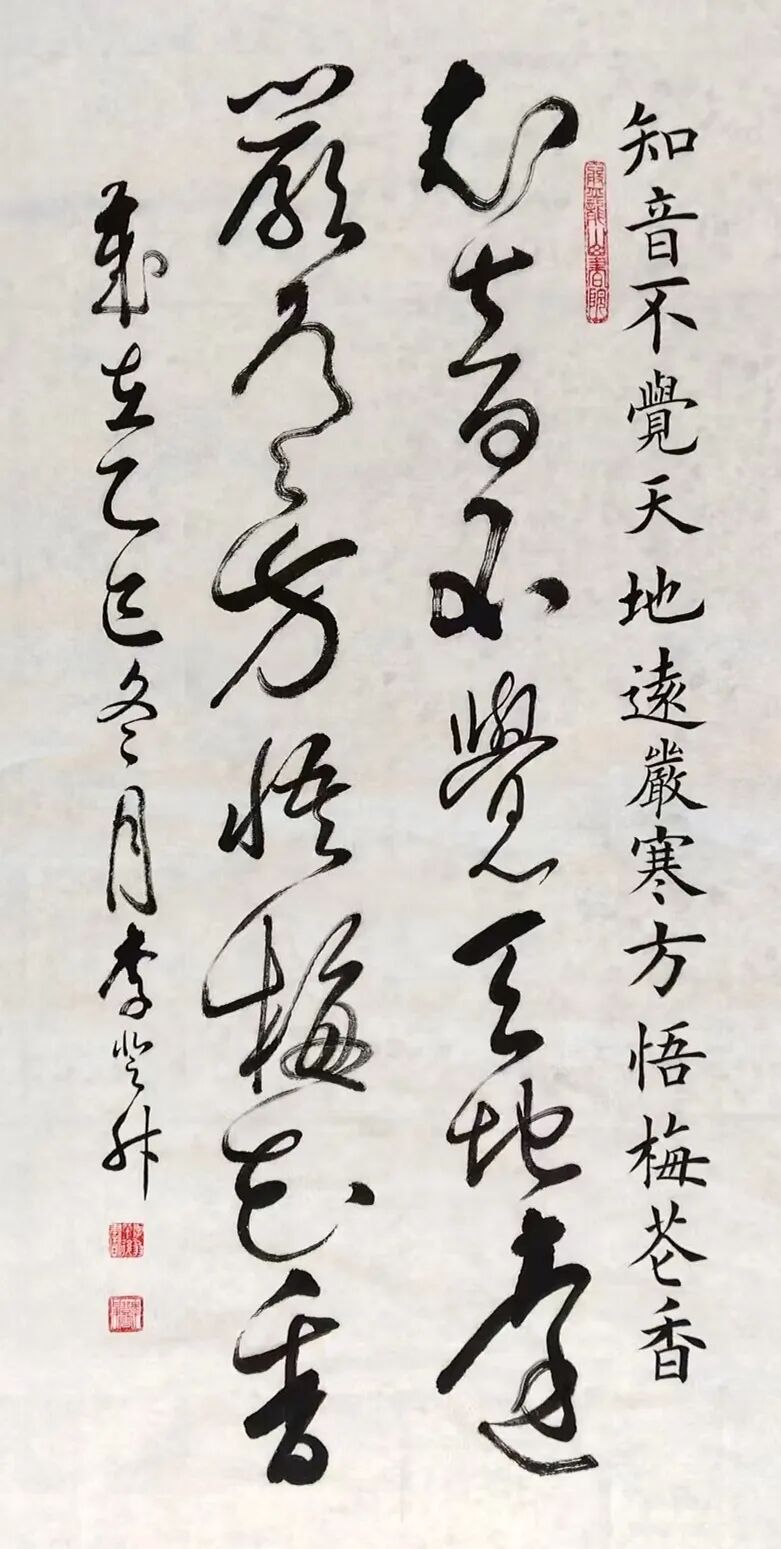 知音不覺天地遠嚴寒方悟梅花香
知音不覺天地遠
嚴寒方悟梅花香
歲在乙巳冬月李登舟